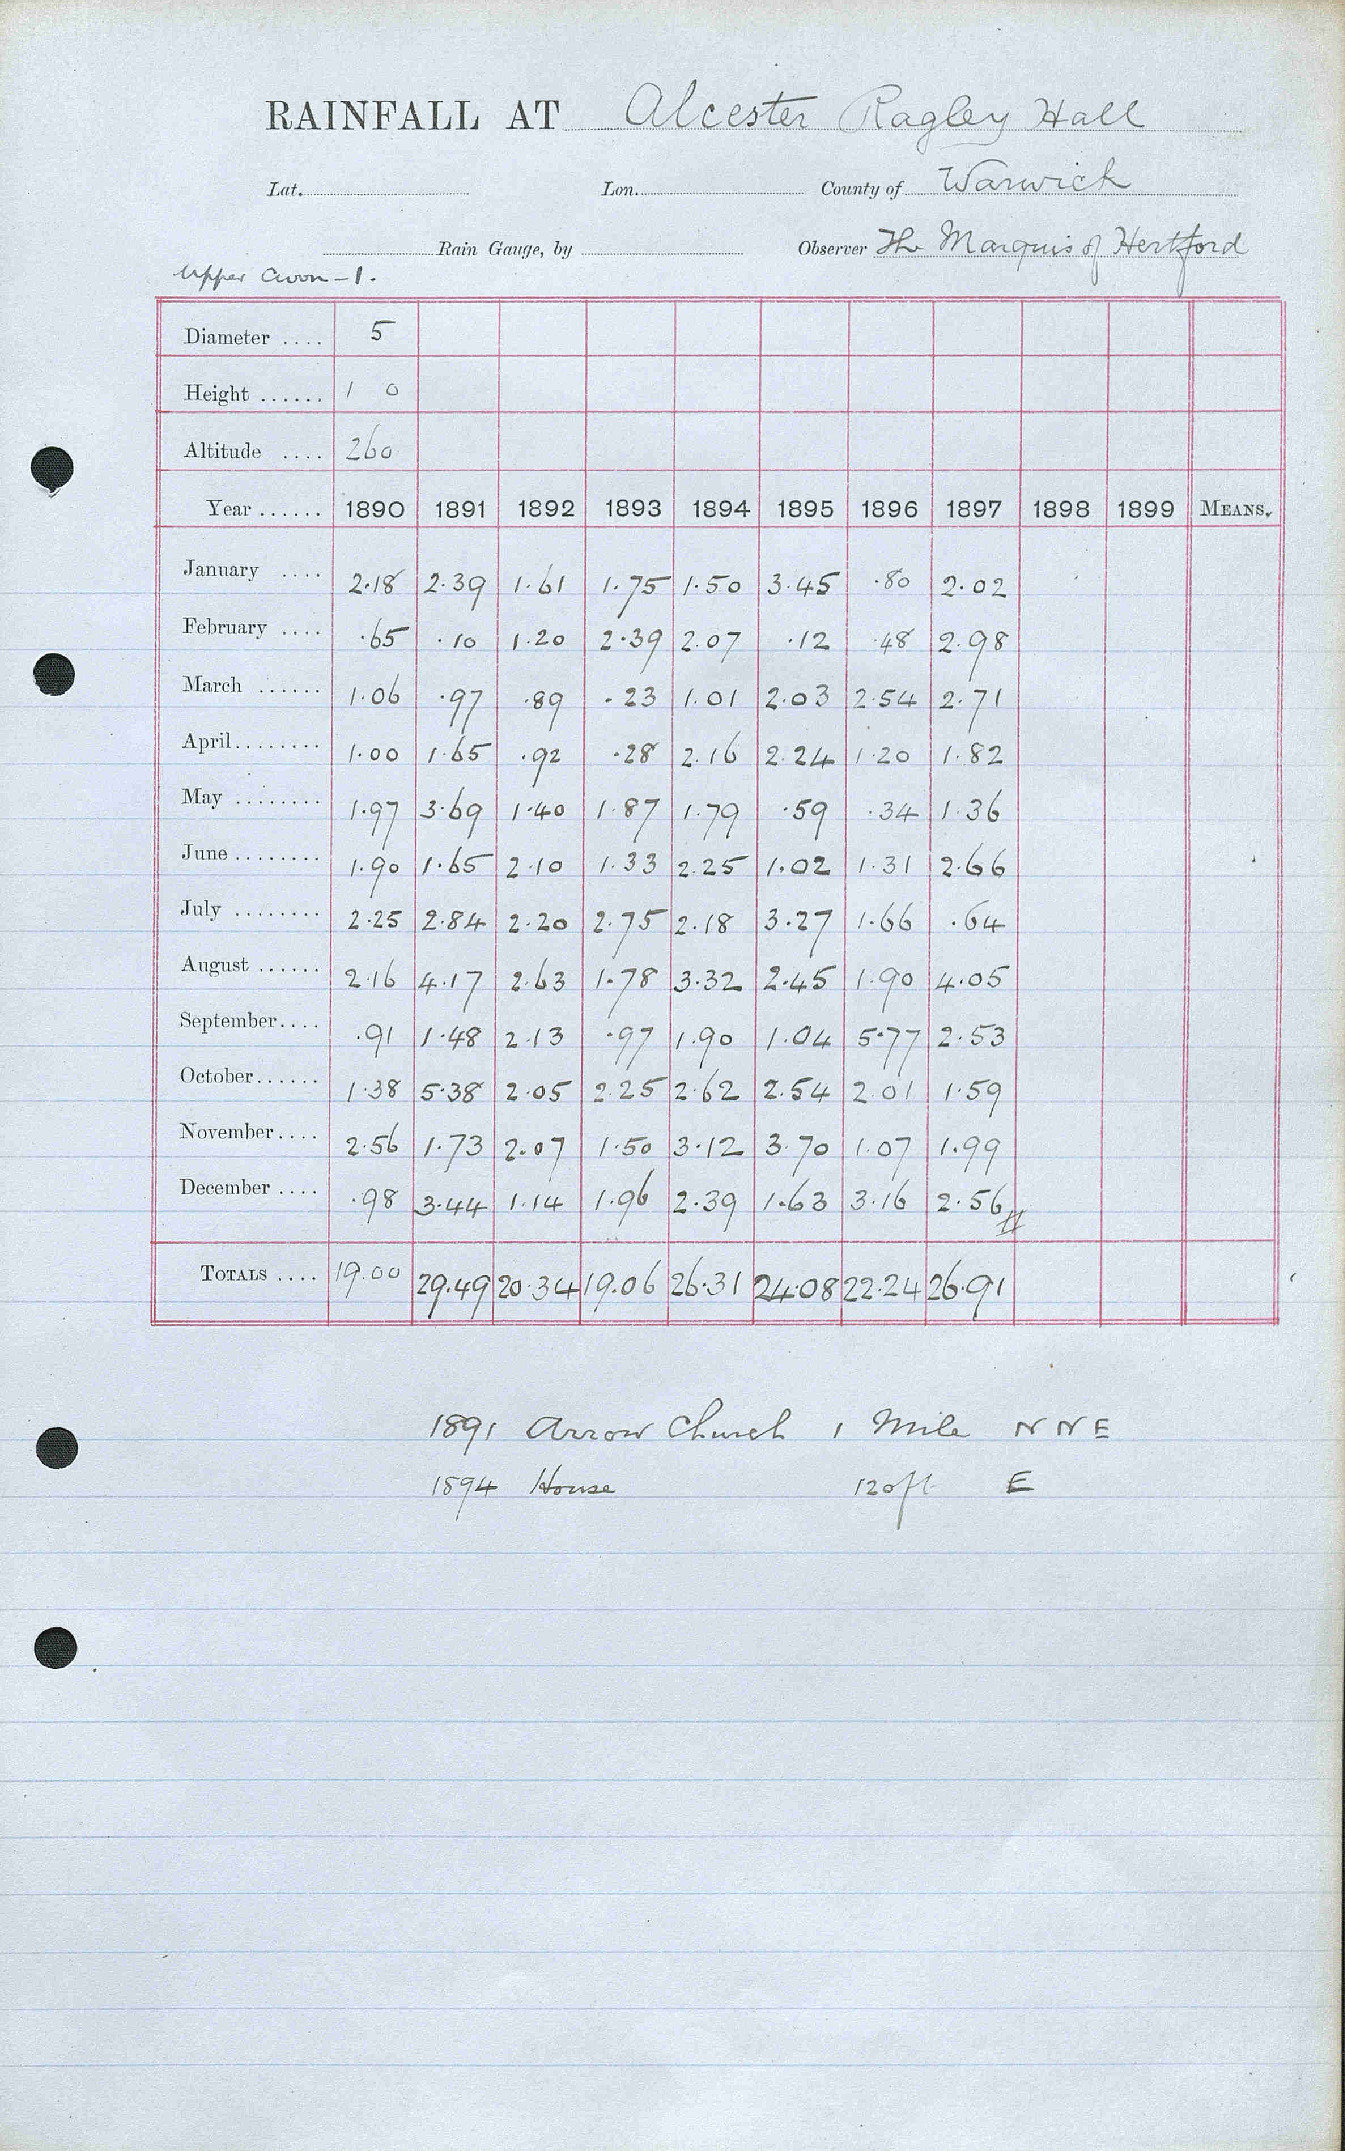 RAINFALL AT Alcester Ragley Hall
Lat. Lon. County of Warwick
Rain Gauge, by Observer The Marquis of Hertford
Upper Avon - 1.
Diameter .... 5
Height ...... 1 0
Altitude .... 260
Year ...... 1890 1891 1892 1893 1894 1895 1896 1897 1898 1899 MEANS.
January .... 2.18 2.39 1.61 1.75 1.50 3.45 .80 2.02
February .... .65 .10 1.20 2.39 2.07 .12 .48 2.98
March ...... 1.06 .97 .89 .23 1.01 2.03 2.54 2.71
April........ 1.00 1.65 .92 .28 2.16 2.24 1.20 1.82
May ........ 1.97 3.69 1.40 1.87 1.79 .59 .34 1.36
June ........ 1.90 1.65 2.10 1.33 2.25 1.02 1.31 2.66
July ........ 2.25 2.84 2.20 2.75 2.18 3.27 1.66 .64
August ...... 2.16 4.17 2.63 1.78 3.32 2.45 1.90 4.05
September.... .91 1.48 2.13 .97 1.90 1.04 5.77 2.53
October...... 1.38 5.38 2.05 2.25 2.62 2.54 2.01 1.59
November.... 2.56 1.73 2.07 1.50 3.12 3.70 1.07 1.99
December .... .98 3.44 1.14 1.96 2.39 1.63 3.16 2.56
TOTALS .... 19.00 29.49 20.34 19.06 26.31 24.08 22.24 26.91
1891 Arrow Church 1 Mile N N E
1894 House 120ft E